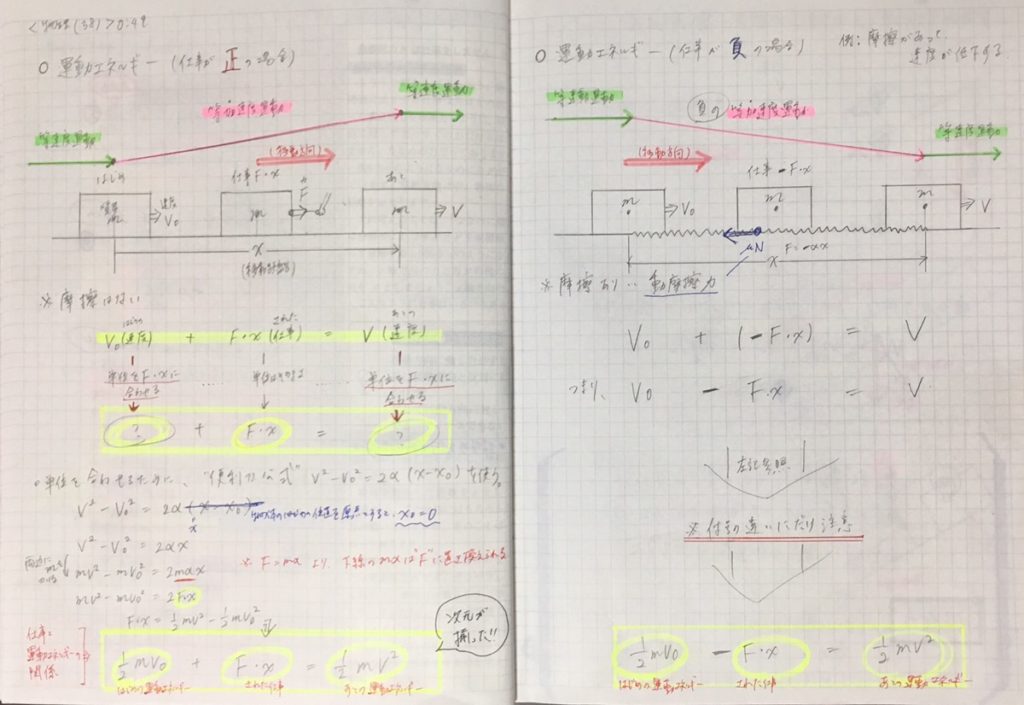 ○ 運動エネルギー (仕事が 正 の場合)
等速度運動
等加速度運動
等速度運動
(移動方向)
はじめ
仕事 F・x
あと
質量
m
速度
V₀
m
F
m
V
x
(移動距離)
※ 摩擦はない
はじめの
V₀(速度) + F・x(仕事) = V(速度)
された
あとの
単位をF・xに
合わせる
単位はそのまま
単位をF・xに
合わせる
? + F・x = ?
○単位を合わせるために、"便利な公式" V² - V₀² = 2a (x - x₀) を使う。
V² - V₀² = 2a (x - x₀)
x
x₀ = 0
V² - V₀² = 2ax
両辺に
mを
かける
mV² - mV₀² = 2max
※ F = ma より、下線の ma は "F" に置き換えられる
mV² - mV₀² = 2F・x
F・x = ½mV² - ½mV₀²
次元が
揃った!!
仕事と
運動エネルギーの
関係
½mV₀ + F・x = ½mV²
はじめの運動エネルギー
された仕事
あとの運動エネルギー
○ 運動エネルギー (仕事が 負 の場合)
例: 摩擦があって
速度が低下する
等速度運動
負の 等加速度運動
等速度運動
(移動方向)
仕事 -F・x
m
V₀
m
m
V
μN
x
※ 摩擦あり… 動摩擦力
V₀ + (-F・x) = V
つまり、 V₀ - F・x = V
左記参照
※ 符号の違いにだけ注意
½mV₀ - F・x = ½mV²
はじめの運動エネルギー
された仕事
あとの運動エネルギー